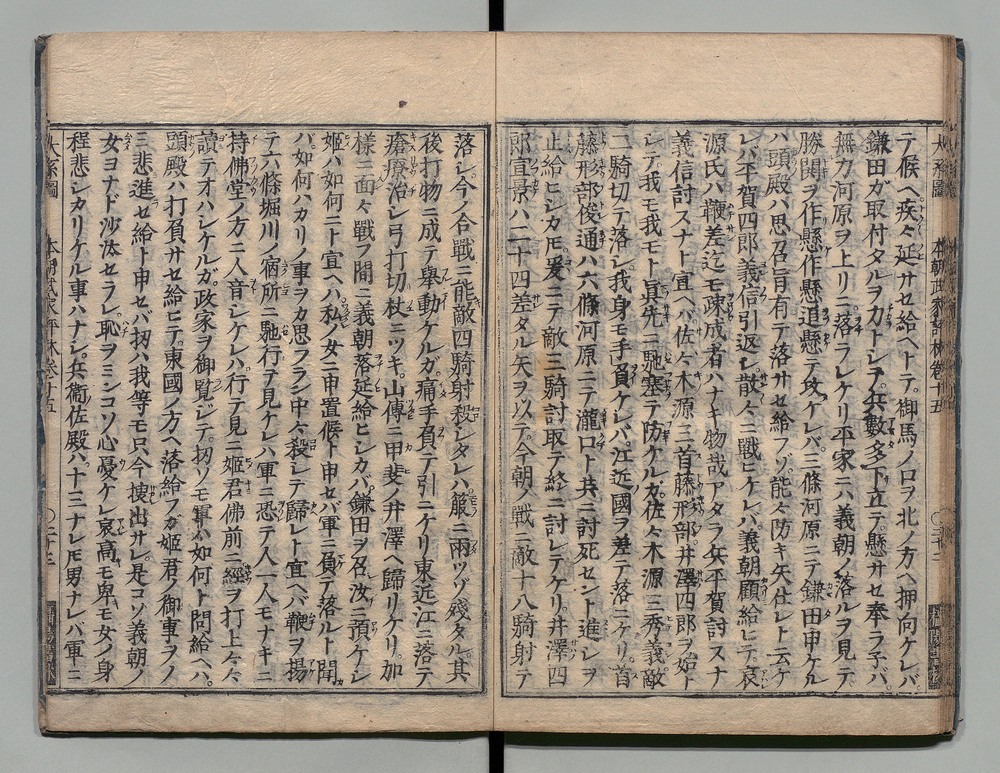 テ候ヘ疾々延サセ給ヘトテ。御馬ノ口ヲ北ノ方ヘ押向ケレバ
鎌田ガ取付タルヲ力トレテ。兵数多下立テ懸サセ奉ラ子バ。
無力河原ヲ上リニ落ラレケリ平家ニハ義朝ノ落ルヲ見テ
勝鬨ヲ作懸作懸追懸テ攻ケレバ三條河原ニテ鎌田申ケル
ハ頭殿ハ思召旨有テ落サセ給フゾ。能々防キ矢仕レト云ケ
レバ平賀四郎義信引返レ散々ニ戰ヒケレバ義朝顧給ヒテ哀
源氏ハ鞭差迄モ疎成者ハナキ物哉アタラ兵平賀討スナ
義信討スナト宣ヘバ佐々木源三首藤刑部井澤四郎ヲ始ト
レテ我モ我モト眞先ニ馳塞テ防ケルガ。佐々木源三秀義敵
二騎切テ落レ我身モ手負ケレバ。江近國ヲ差テ落ニケリ。首
藤刑部俊通ハ六條河原ニテ瀧口ト共ニ討死セント進レヲ
止給ヒシカ𪜈爰ニテ敵三騎討取テ終ニ討レテケリ。井澤四
郎宣景ハ二十四差タル矢ヲ以テ。今朝ノ戰ニ敵十八騎射テ
大系圖 本朝武家評林巻十五 ○二十二
落レ。今ノ合戰ニ能敵四騎射殺シタレハ箙ニ兩ツゾ殘タル。其
後打物ニ成テ擧動ケルガ。痛手負テ引ニケリ東近江ニ落テ
瘡療治レ弓打切杖ニツキ。山傳ニ甲斐ノ井澤ヘ歸リケリ。加
樣ニ面々戰フ間ニ義朝落延給ヒシカバ。鎌田ヲ召汝ニ預ケシ
姬ハ如何ニト宣ヘハ私ノ女ニ申置候ト申セバ軍ニ負テ落ルト聞
バ如何ハカリノ事ヲカ思フラン中々殺レテ歸レト宣ヘバ鞭ヲ揚
テ六條堀川ノ宿所ニ馳行テ見ケレハ軍ニ恐テ人一人モナキニ
持佛堂ノ方ニ人音シケレハ行テ見ニ姬君佛前ニ經ヲ打上々々
讀テオハシケルガ。政家ヲ御覧ジテ。扨ソモ軍ハ如何ト問給ヘハ。
頭殿ハ打負サセ給ヒテ。東國ノ方ヘ落給フガ姬君ノ御事ヲノ
三悲進セ給ト申セバ扨ハ我等モ只今捜出サレ是コソ義朝ノ
女ヨナド沙汰セラレ。恥ヲミンコソ心憂ケレ哀高モ卑モ女ノ身
程悲シカリケル事ハナシ。兵衛佐殿ハ十三ナレ𪜈男ナレバ軍ニ
大系圖 本朝武家評林巻十五 ○二十三